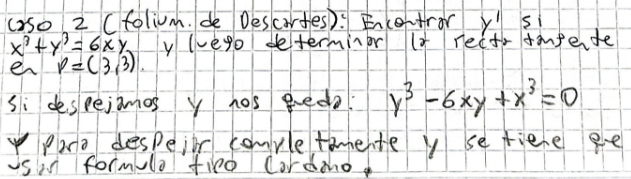 Caso 2 (folium. de Descartes): Encontrar y' si
x³+y³=6xy, y luego determinar la recta tangente
en P=(3,3).
Si despejamos y nos queda: y³-6xy+x³=0
Y para despejar completamente y se tiene que
usar formula tipo Cardano.